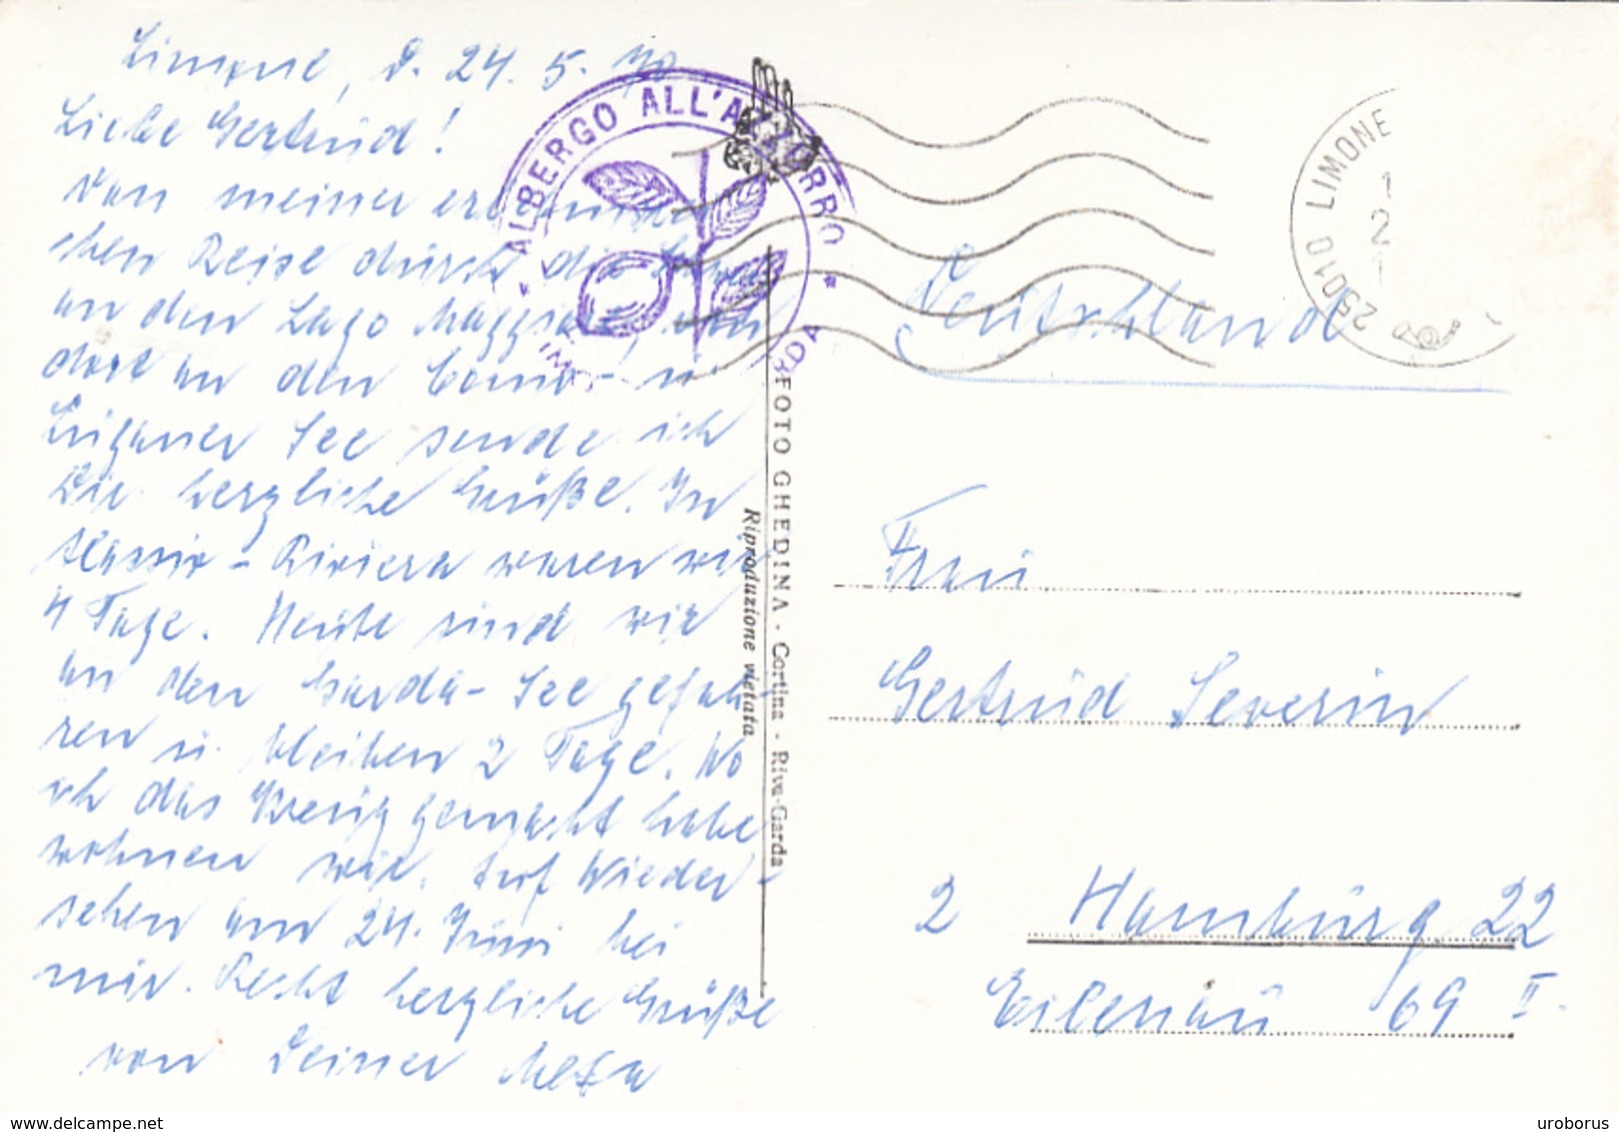 Limone, d. 24. 5. 70
Liebe Gertrud!
Von meiner
chen Reise durch die
an den Lago Maggiore, von
dort an den Como- u.
Luganer See sende ich
Dir herzliche Grüße. In
Alassio - Riviera waren wir
4 Tage. Heute sind wir
an den Garda-See gefah-
ren u. bleiben 2 Tage. Wo
ich das Kreuz gemacht habe
wohnen wir. Auf Wieder-
sehen am 24. Juni bei
mir. Recht herzliche Grüße
von Deiner
ALBERGO ALL'AZZURRO
FOTO GHEDINA - Cortina - Riva-Garda
Riproduzione vietata
25010 LIMONE
1
2
1
Deutschland
Frau
Gertrud Severin
2 Hamburg 22
Eilenau 69 II.
uroborus